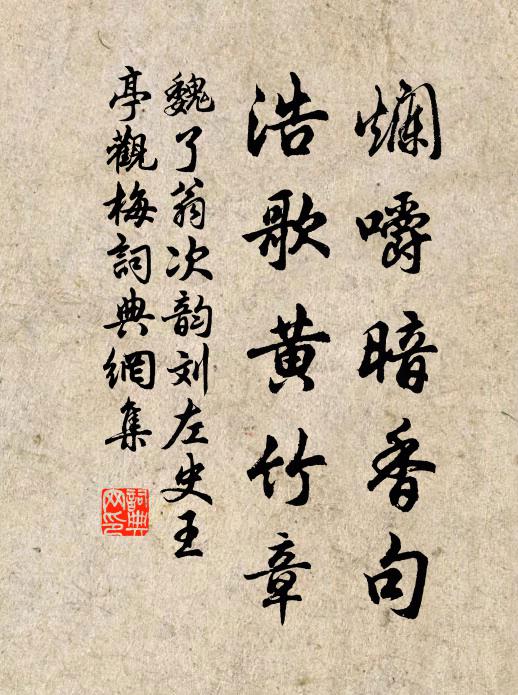 爛嚼暗香句
浩歌黄竹章
魏了翁次韵刘左史王
亭觀梅詞典網集
詞典
网印